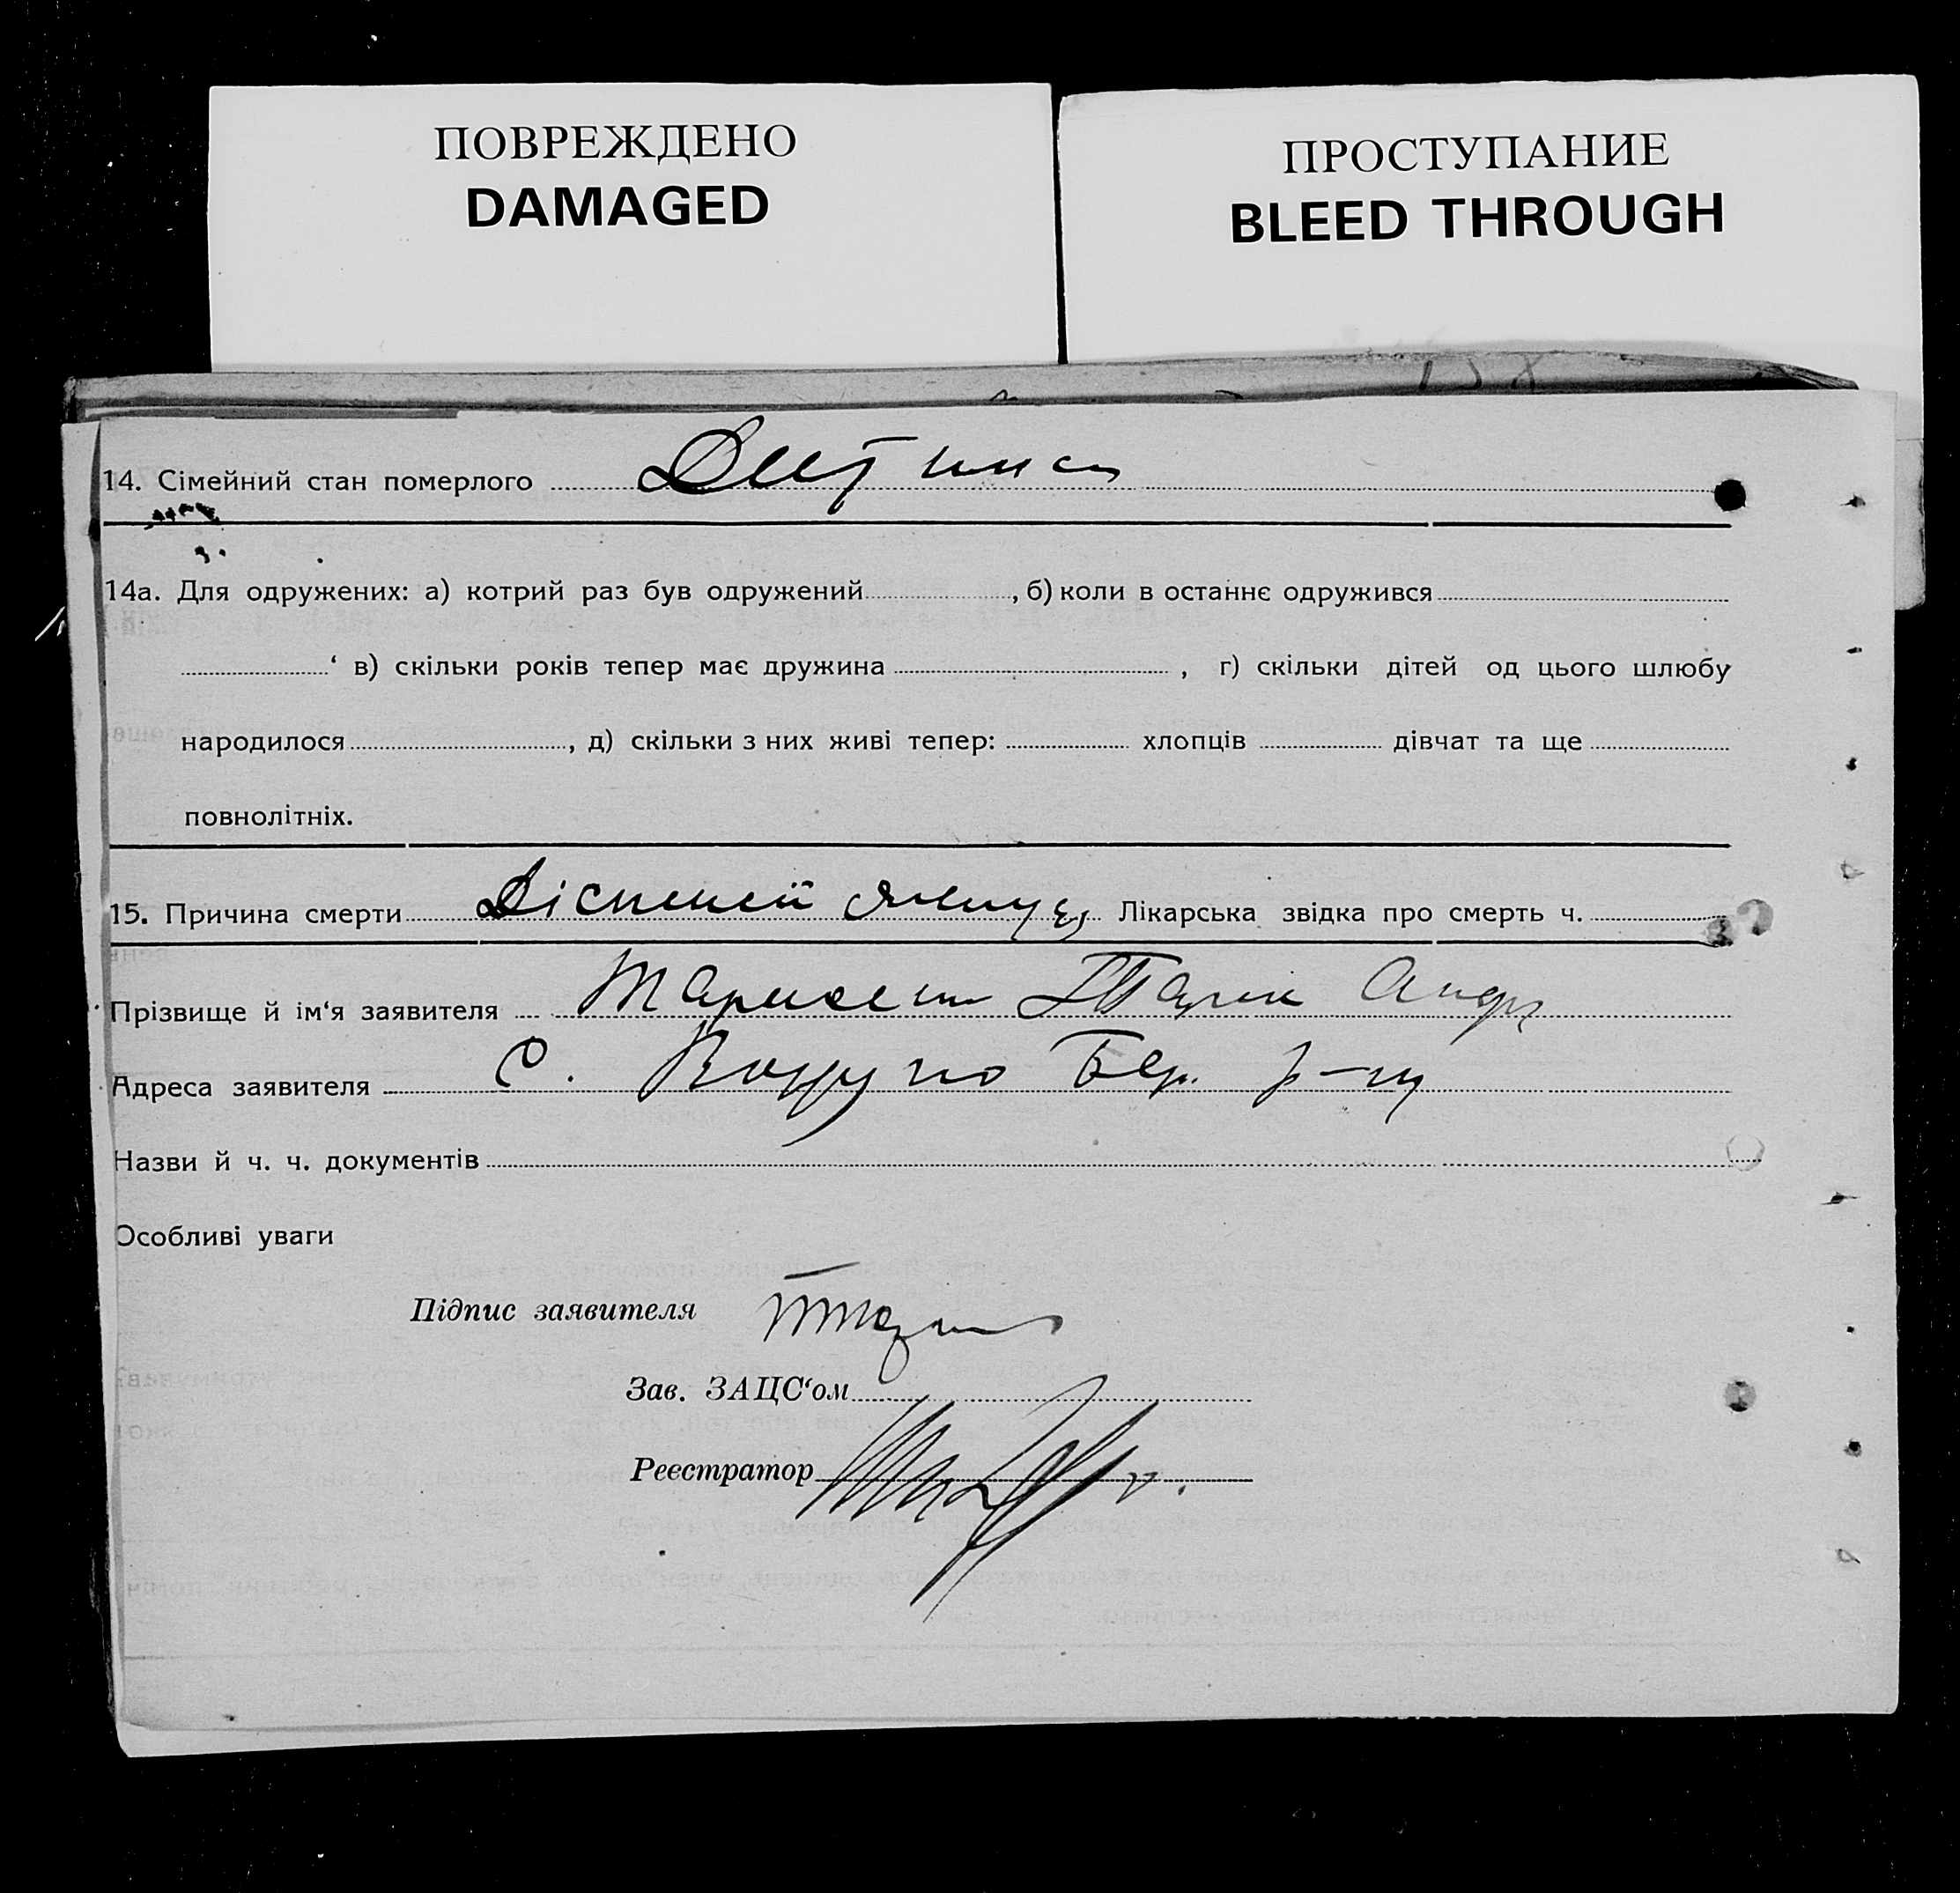 ПОВРЕЖДЕНО
DAMAGED
ПРОСТУПАНИЕ
BLEED THROUGH
14. Сімейний стан померлого Дитина
14а. Для одружених: а) котрий раз був одружений , б) коли в останнє одружився
‘ в) скільки років тепер має дружина , г) скільки дітей од цього шлюбу
народилося , д) скільки з них живі тепер: хлопців дівчат та ще
повнолітніх.
15. Причина смерти Лікарська звідка про смерть ч.
Прізвище й ім‘я заявителя Андр
Адреса заявителя с. Бер. р-ну
Назви й ч. ч. документів
Особливі уваги
Підпис заявителя
Зав. ЗАЦС‘ом
Реєстратор